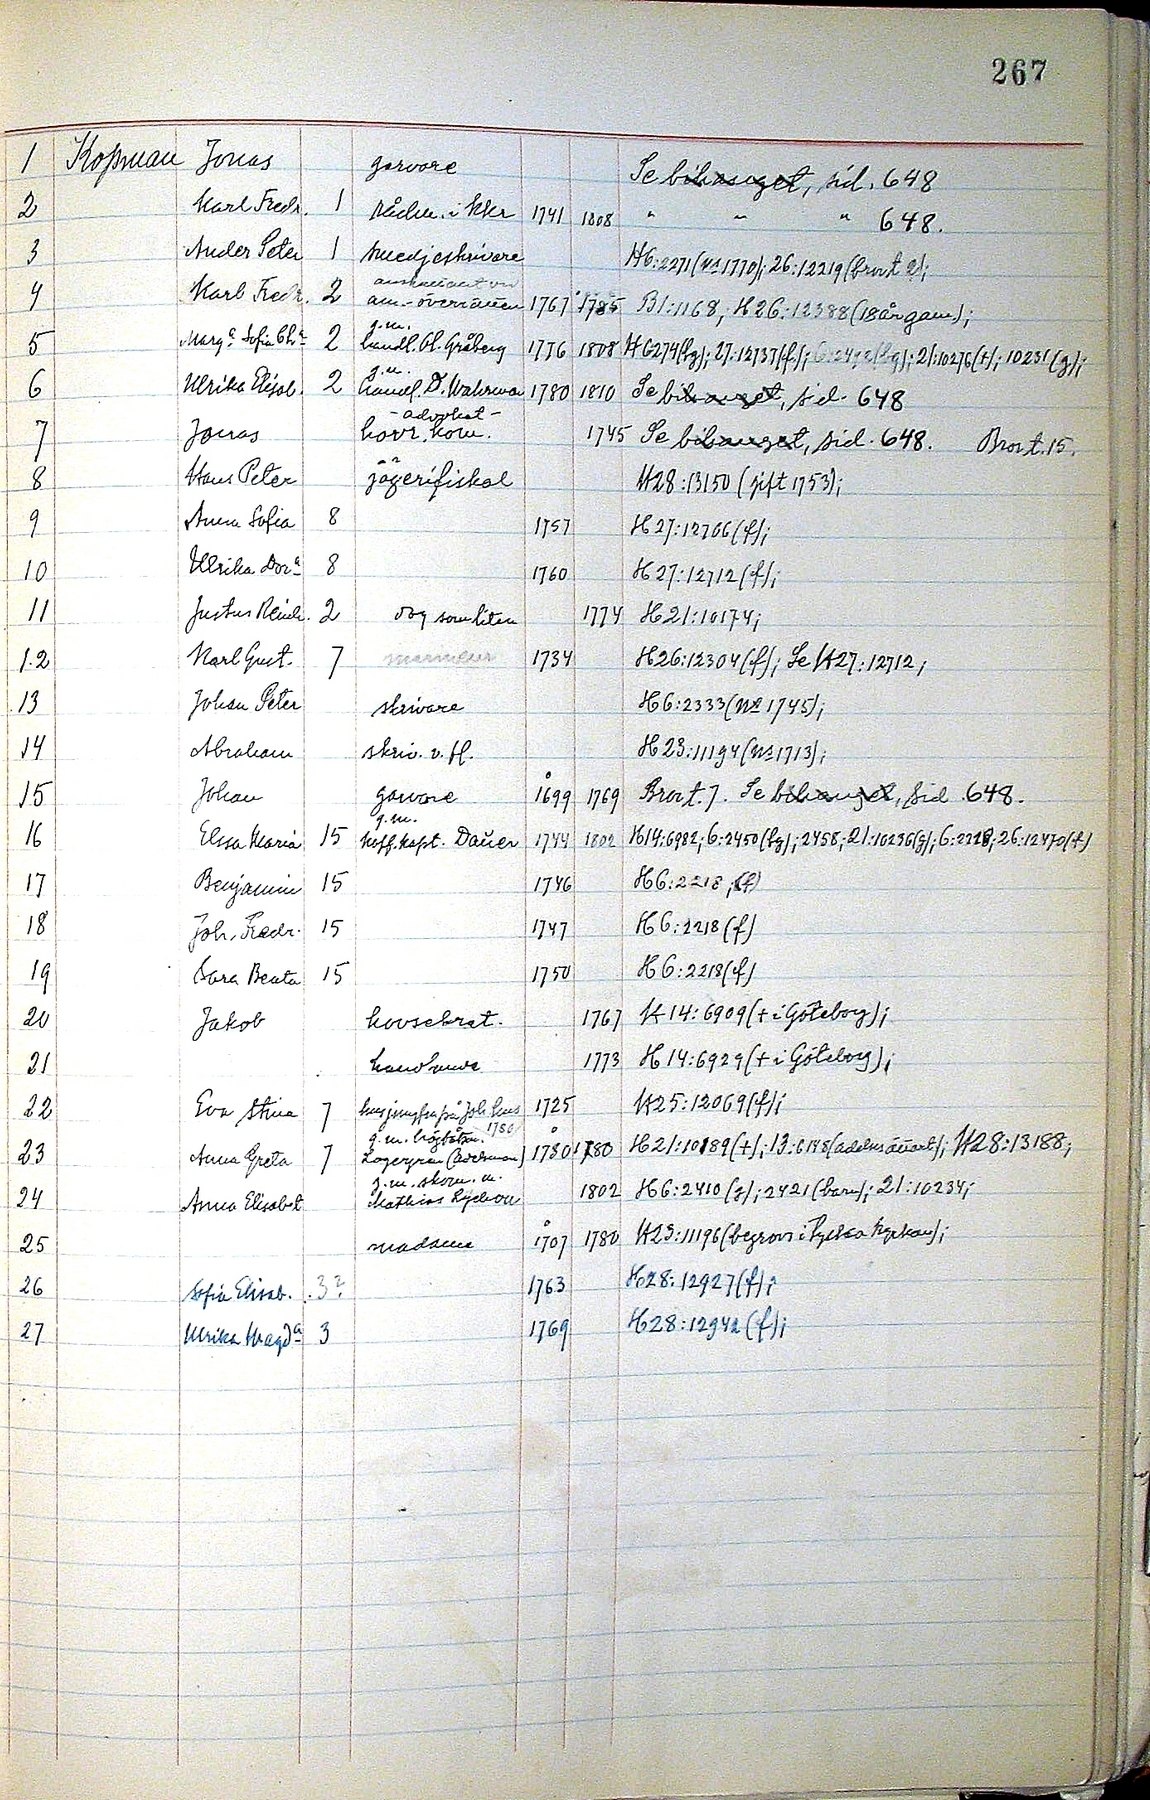 267
1 Kopman Jonas garvare Se bihanget, sid. 648
2 Karl Fredr. 1 rådm. i Kkr 1741 1808 " " " 648.
3 Ander Peter 1 smedjeskrivare H6:2271 (nº 1770); 26:12219 (bror t 2);
4 Karl Fredr. 2 auskultant vid am.-överrätten 1767 1785 B1:1168, H26:12388 (18 år gam);
5 Marg:a Sofia Ch:a 2 g.m. handl. Ol. Gråberg 1776 1808 H6274 (fg); 27:12737 (f.); 6:2492 (fg); 21:10276 (+); 10231 (g);
6 Ulrika Elisab. 2 g.m. handl. D. Wahrman 1780 1810 Se bihanget, sid. 648
7 Jonas -advokat- hovr. kom. 1745 Se bihanget, sid. 648. Bror t. 15.
8 Hans Peter jägerifiskal H28:13150 (gift 1753);
9 Anna Sofia 8 1757 H27:12706 (f);
10 Ulrika Dor:a 8 1760 H27:12712 (f);
11 Justus Reinh. 2 dog som liten 1774 H21:10174;
12 Karl Gust. 7 1734 H26:12304 (f); Se H27:12712;
13 Johan Peter skrivare H6:2333 (nº 1745);
14 Abraham skriv. v. fl. H23:11194 (nº 1713);
15 Johan garvare 1699 1769 Bror t. 7. Se bihanget, sid. 648.
16 Elsa Maria 15 g.m. koff. kapt. Dauer 1744 1802 H14:6982; 6:2450 (fg); 2458; 21:10236 (g); 6:2218; 26:12470 (f)
17 Benjamin 15 1746 H6:2218, (f)
18 Joh. Fredr. 15 1747 H6:2218 (f)
19 Sara Beata 15 1750 H6:2218 (f)
20 Jakob hovsekret. 1767 H14:6909 (+ i Göteborg);
21 1773 H14:6929 (+ i Göteborg);
22 Eva Stina 7 husjungfru på Joh. hus 1725 H25:12069 (f);
23 Anna Greta 7 g.m. högbåtsm. 1750 Lagergren (Adelsman) 1730 1780 H21:10189 (+); 13:6148 (adelns ättart); H28:13188;
24 Anna Elisabet g.m. skom. m. Mathias Lydron 1802 H6:2410 (g); 2421 (barn); 21:10234;
25 madame 1707 1780 H23:11196 (begrovs i Tyska kyrkan);
26 Sofia Elisab. 3? 1763 H28:12927 (f);
27 Ulrika Magd:a 3 1769 H28:12942 (f);